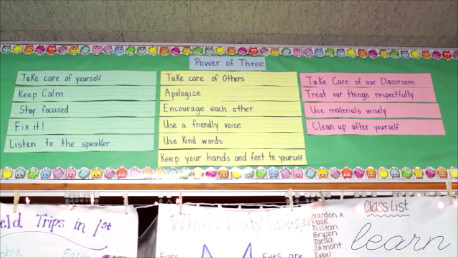 Power of Three
Take care of yourself
Keep Calm
Stay focused
Fix it!
Listen to the speaker
Take care of Others
Apologize
Encourage each other
Use a friendly voice
Use Kind words
Keep your hands and feet to yourself
Take Care of our Classroom
Treat our things respectfully
Use materials wisely
Clean up after yourself
eld Trips in 1st
Class List
Tristan
Bryan
learn